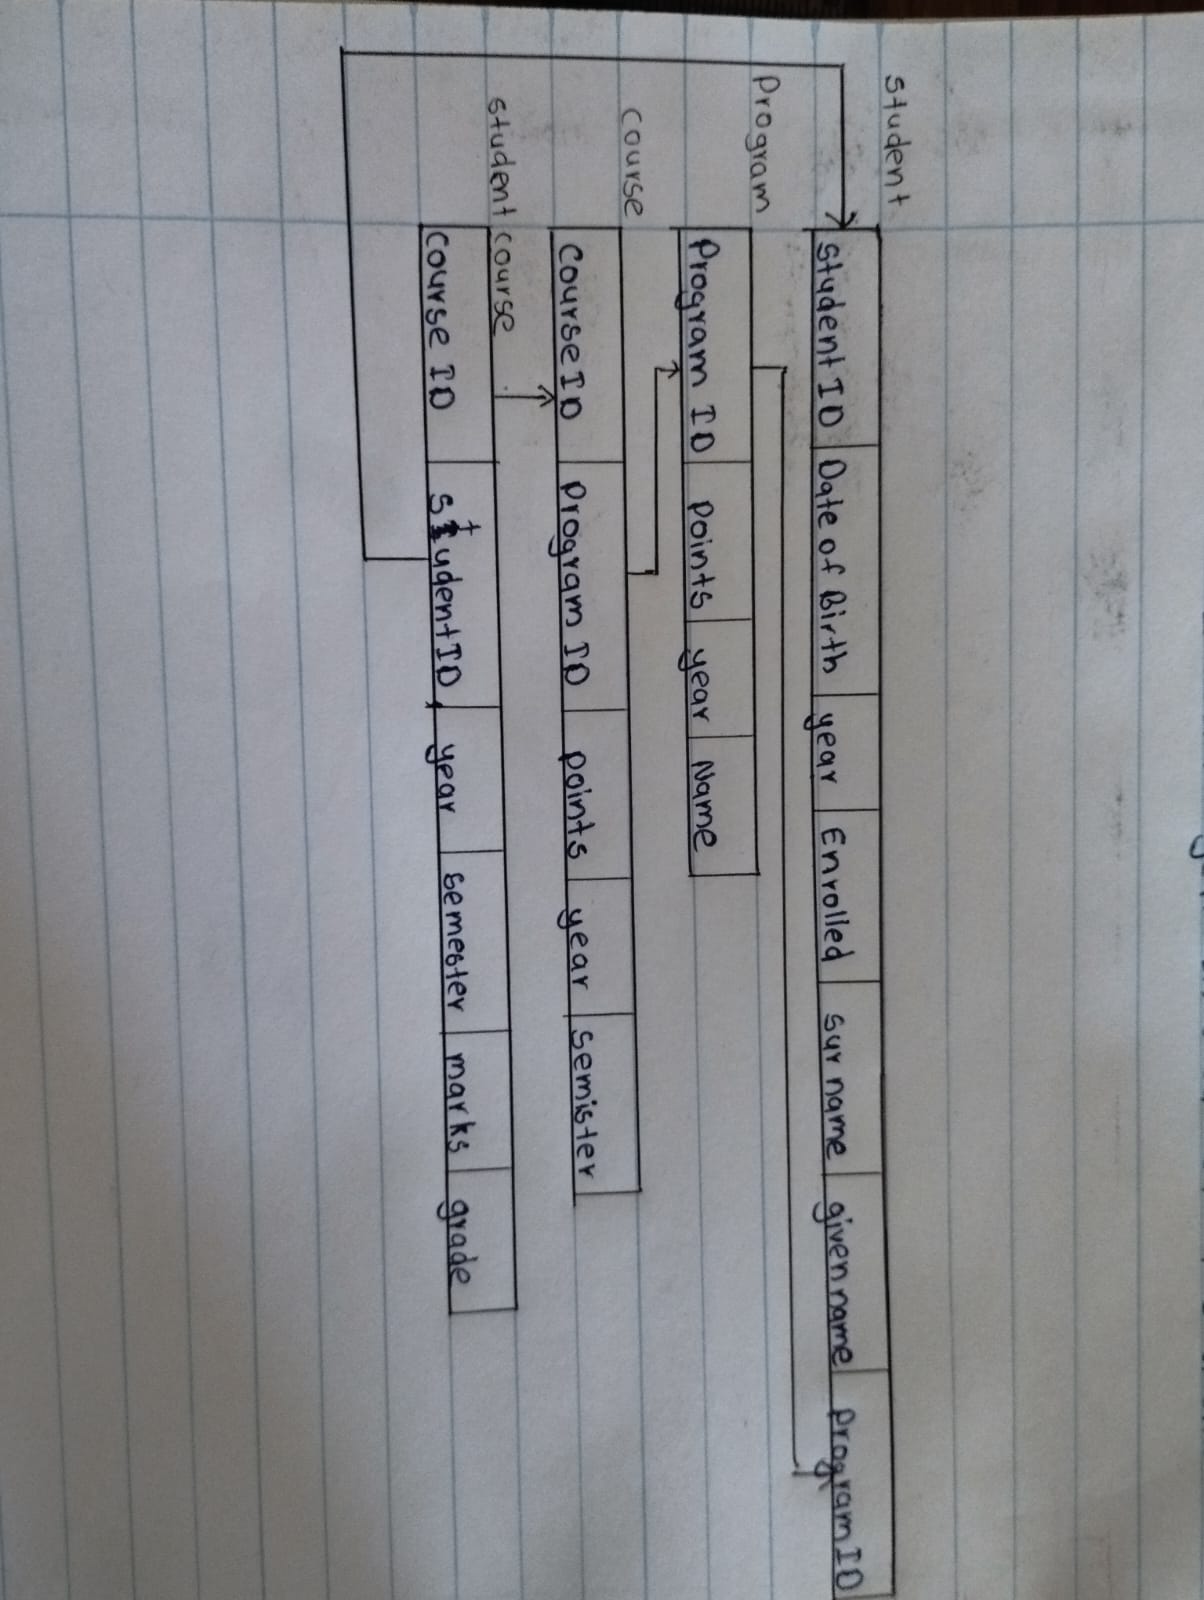 student
student ID Date of Birth year Enrolled surname given name program ID
Program
Program ID points year Name
course
course ID program ID points year semister
student course
course ID studentID year semester marks grade